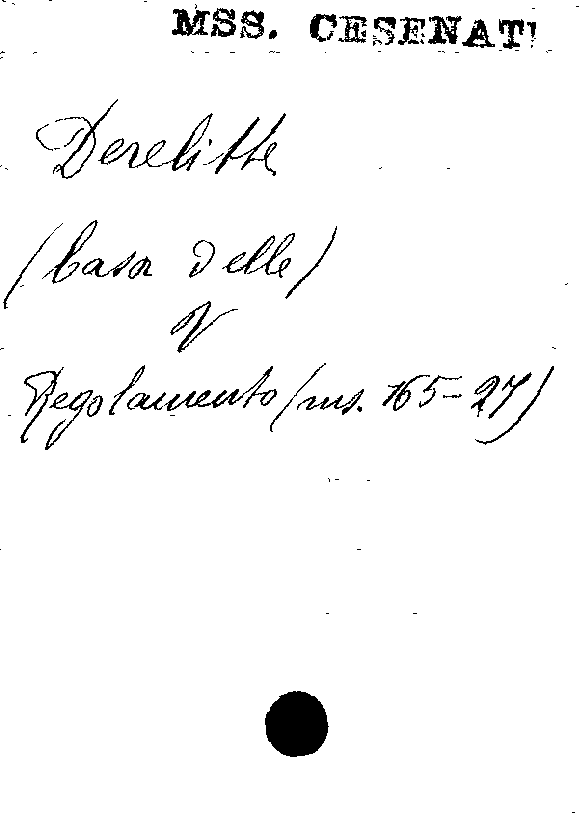 MSS. CESENATI
Derelitte
(Casa delle)
V
Regolamento (ms. 165-27)